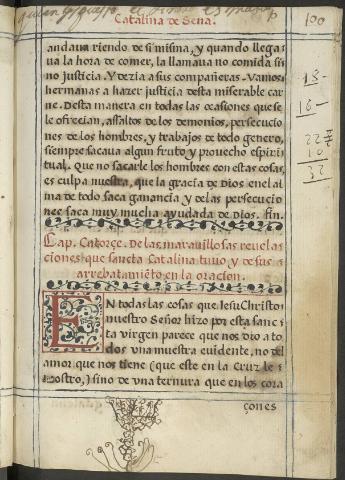 Catalina de Sena.
100
andaua riendo de si misma, y quando llega
ua la hora de comer, la llamaua no comida si
no justicia. Y dezia a sus compañeras. Vamos
hermanas a hazer justicia desta miserable car
ne. Desta manera en todas las ocasiones que se
le ofrecian, assaltos de los demonios, persecucio
nes de los hombres, y trabajos de todo genero,
siempre sacaua algun fruto y prouecho espiri
tual. Que no sacarle los hombres con estas cosas,
es culpa nuestra, que la gracia de Dios en el al
ma de todo saca ganancia y de las persecucio
nes saca muy mucha ayudada de Dios. fin.
Cap. Catorçe. De las marauillosas reuelas
ciones que sancta Catalina tuuo y de sus
arrebatamiẽto en la oracion.
EN todas las cosas que Iesu Christo
nuestro Señor hizo por esta sanc
ta virgen parece que nos dio a to
dos una muestra euidente, no del
amor que nos tiene (que este en la Cruz le
mostro,) sino de una ternura que en los cora
çones
18
16
22
10
32